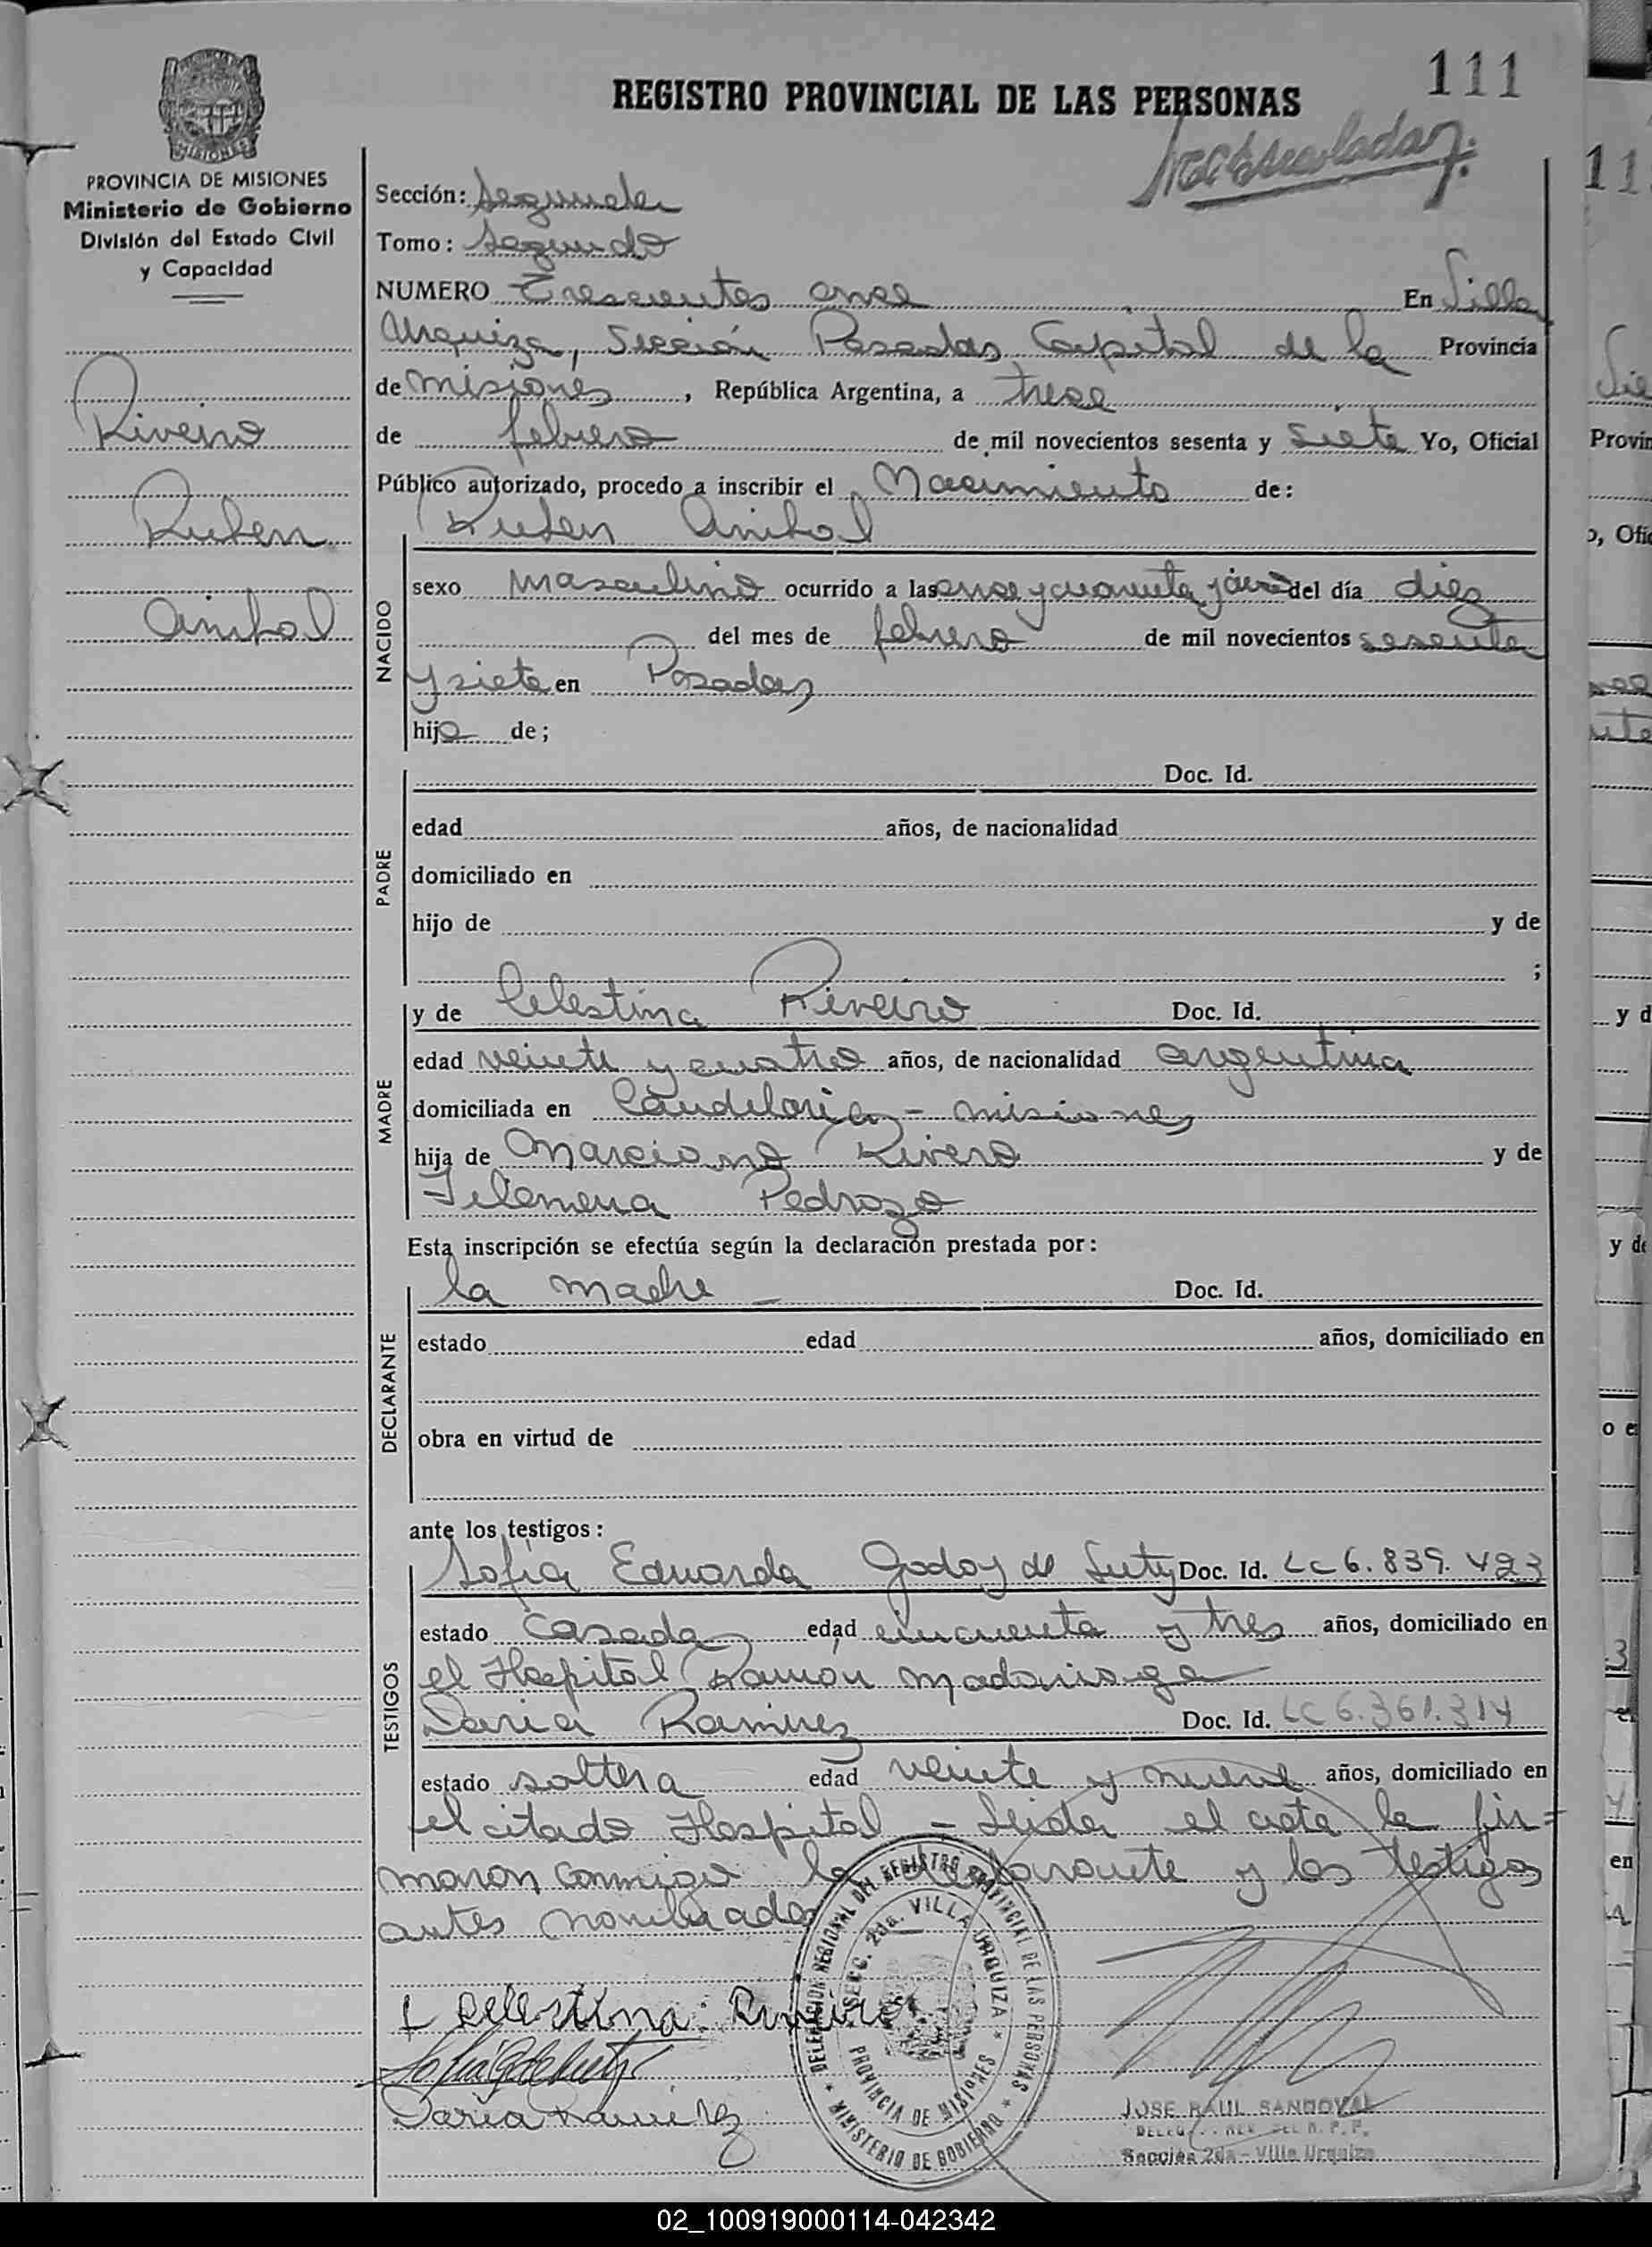 111
REGISTRO PROVINCIAL DE LAS PERSONAS
MISIONES
PROVINCIA DE MISIONES
Ministerio de Gobierno
División del Estado Civil
y Capacidad
Riveiro
Ruben
Anibal
Sección: Segunda
Tomo: Segundo
NUMERO Trescientos once En Villa
Urquiza, Sección Posadas Capital de la Provincia
de Misiones, República Argentina, a trece
de febrero de mil novecientos sesenta y siete Yo, Oficial
Público autorizado, procedo a inscribir el Nacimiento de:
Ruben Anibal
NACIDO
sexo masculino ocurrido a las once y cuarenta y cinco del día diez
del mes de febrero de mil novecientos sesenta
y siete en Posadas
hijo de;
PADRE
Doc. Id.
edad años, de nacionalidad
domiciliado en
hijo de y de
;
MADRE
y de Celestina Riveiro Doc. Id.
edad veinte y cuatro años, de nacionalidad argentina
domiciliada en Candelaria - Misiones
hija de Marciano Rivero y de
Filomena Pedrozo
Esta inscripción se efectúa según la declaración prestada por:
DECLARANTE
la madre - Doc. Id.
estado edad años, domiciliado en
obra en virtud de
ante los testigos:
TESTIGOS
Sofia Eduarda Godoy de Doc. Id. LC 6.839.423
estado casada edad cincuenta y tres años, domiciliado en
el Hospital Ramón Madariaga
Daria Ramirez Doc. Id. LC 6.361.314
estado soltera edad veinte y nueve años, domiciliado en
el citado Hospital - Leida el acta la fir=
maron conmigo la declarante y los testigos
antes nombrados
Celestina Riveiro
Daria Ramirez
DELEGACION REGIONAL DEL REGISTRO PROVINCIAL DE LAS PERSONAS * MINISTERIO DE GOBIERNO *
SECC. 2da. VILLA URQUIZA * PROVINCIA DE MISIONES *
JOSE RAUL SANDOVAL
Sección 2da - Villa Urquiza
02_100919000114-042342